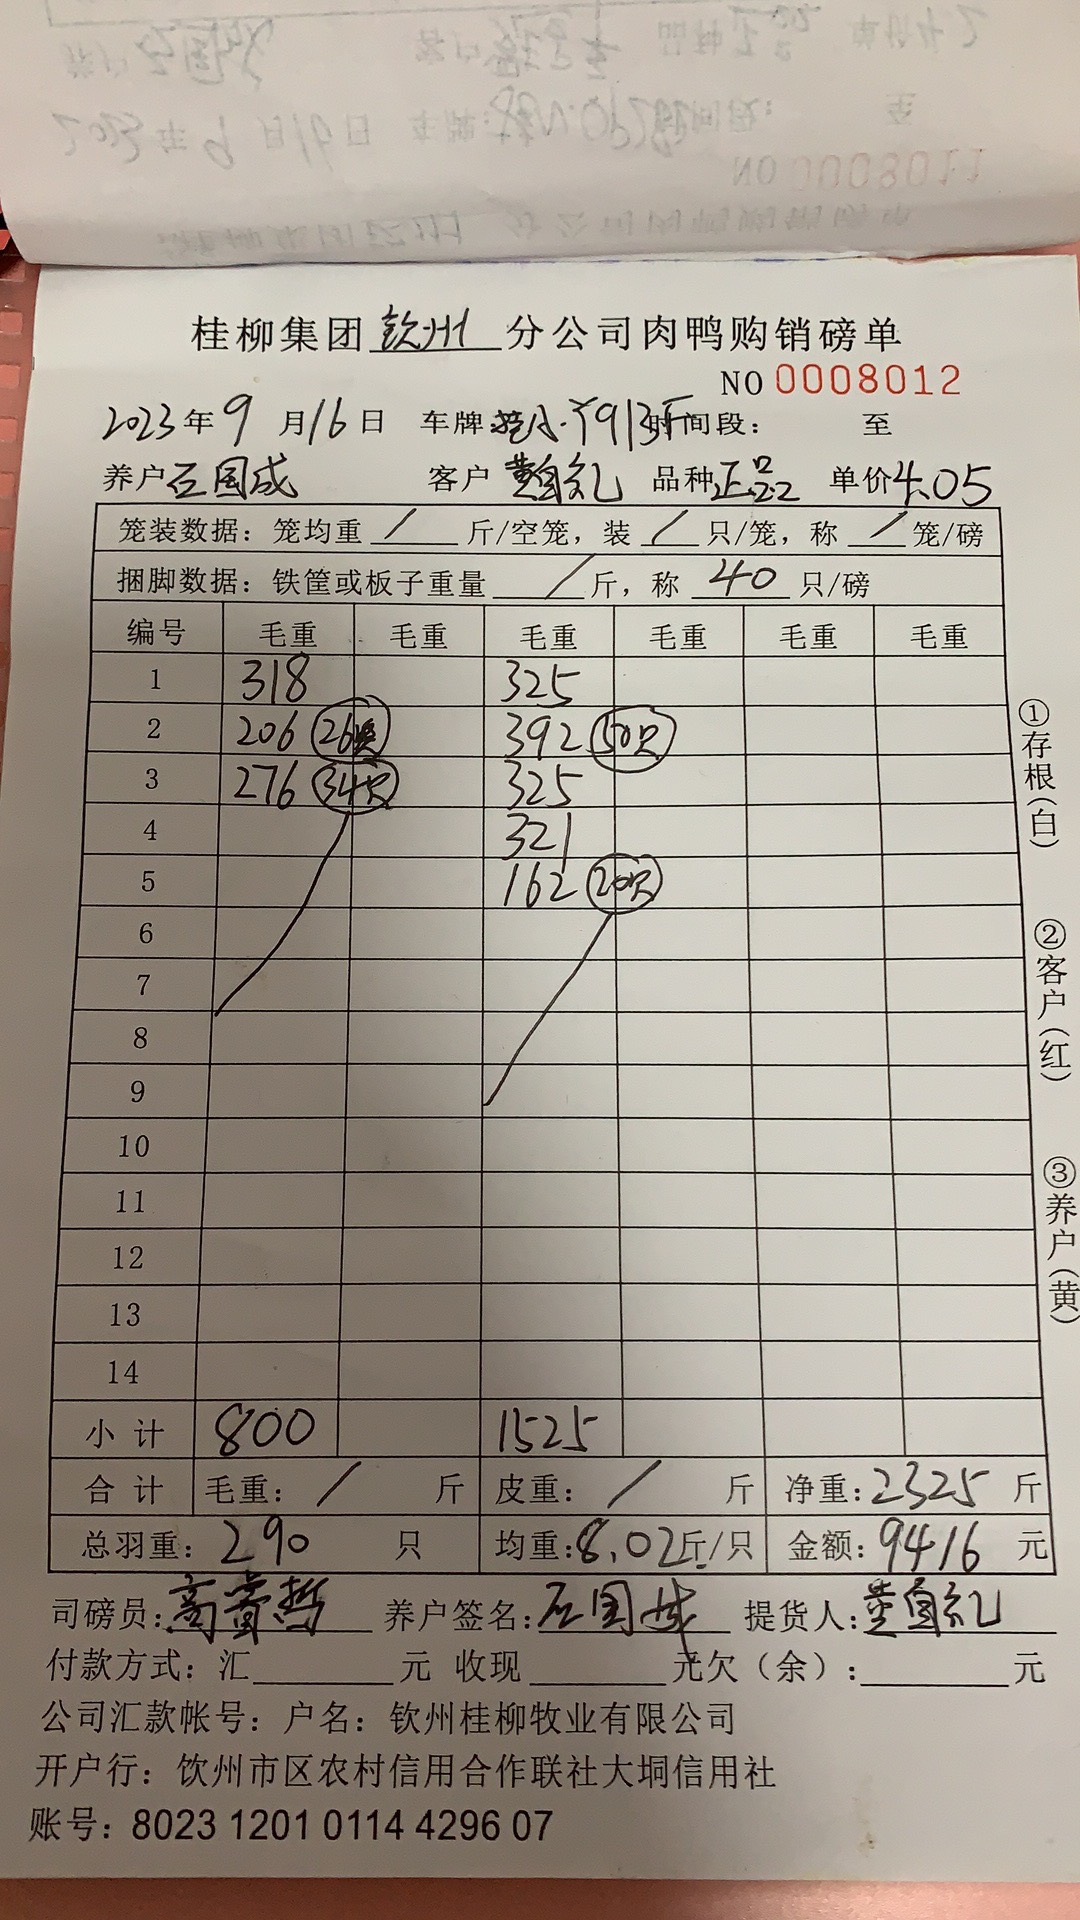 桂柳集团钦州分公司肉鸭购销磅单
NO 0008012
2023年9月16日 车牌: 时间段: 至
养户石国成 客户黄自礼 品种正品 单价4.05
笼装数据：笼均重 / 斤/空笼，装 / 只/笼，称 / 笼/磅
捆脚数据：铁筐或板子重量 / 斤，称 40 只/磅
编号 毛重 毛重 毛重 毛重 毛重 毛重
1 318 325
2 206 26只 392 50只
3 276 34只 325
4 321
5 162 20只
6
7
8
9
10
11
12
13
14
小计 800 1525
合计 毛重: / 斤 皮重: / 斤 净重:2325斤
总羽重:290只 均重:8.02斤/只 金额:9416元
司磅员: 养户签名:石国成 提货人:黄自礼
付款方式：汇____元 收现____元欠（余）:____元
公司汇款帐号：户名：钦州桂柳牧业有限公司
开户行：饮州市区农村信用合作联社大垌信用社
账号：8023 1201 0114 4296 07
①存根(白)
②客户(红)
③养户(黄)